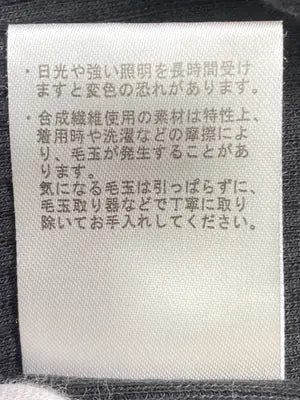 ・日光や強い照明を長時間受け
ますと変色の恐れがあります。
・合成繊維使用の素材は特性上、
着用時や洗濯などの摩擦によ
り、毛玉が発生することがあ
ります。
気になる毛玉は引っぱらずに、
毛玉取り器などで丁寧に取り
除いてお手入れしてください。